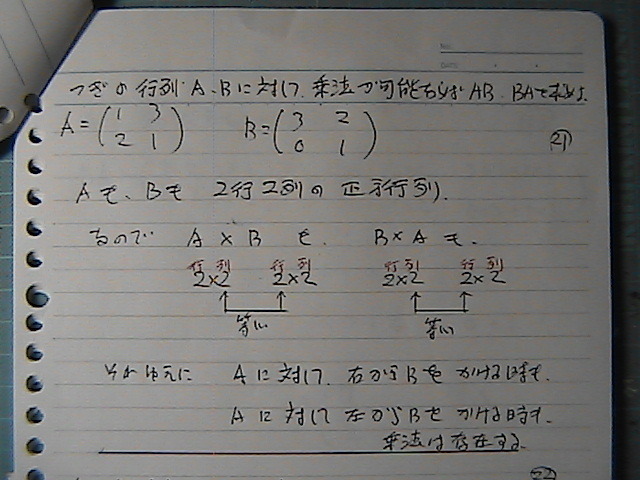 No.
DATE
つぎの行列A、Bに対して、乗法が可能ならば AB、BAを求めよ.
A=(1 3 2 1) B=(3 2 0 1) 21
Aも、Bも 2行2列の正方行列.
なので A×B も、 B×A も、
行 列 行 列 行 列 行 列
2×2 2×2 2×2 2×2
等しい 等しい
それゆえに Aに対して、右からBをかける時も、
Aに対して左からBをかける時も、
乗法は存在する.
22